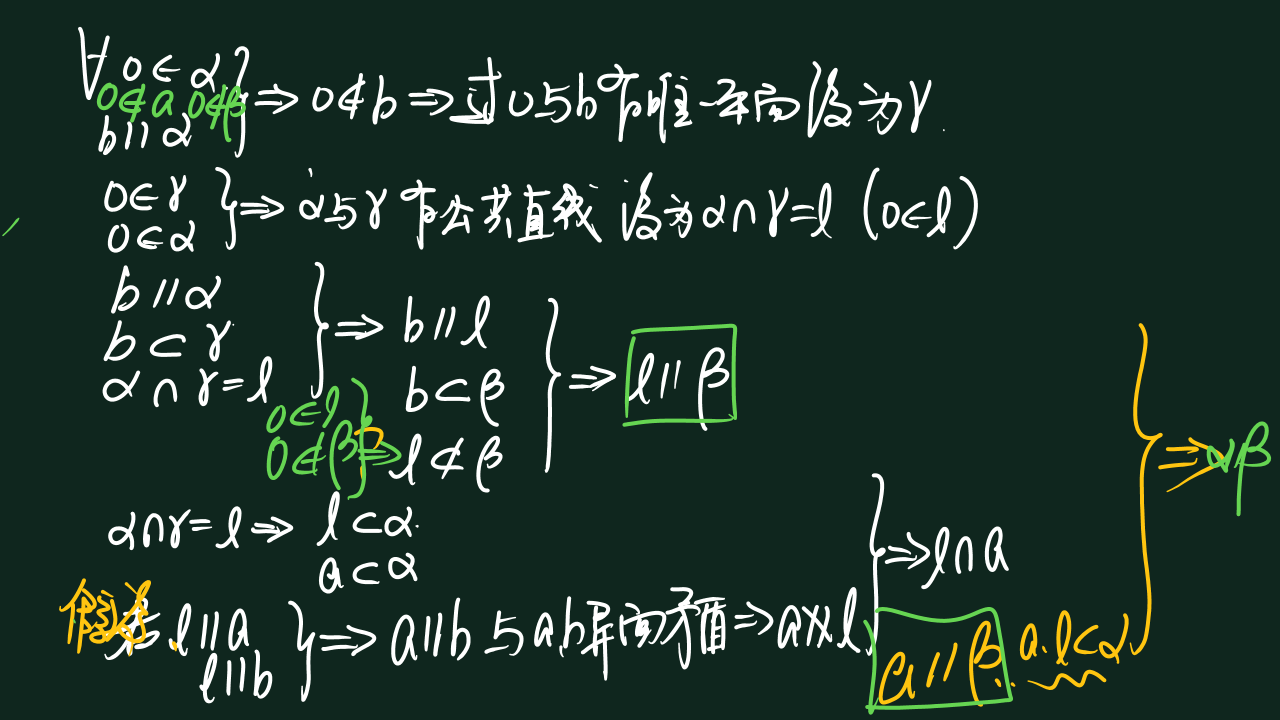 ∀ O∈α
O∉a O∉β
b∥α
} ⇒ O∉b ⇒ 过O与b有唯一平面 设为γ
O∈γ
O∈α
} ⇒ α与γ有公共直线 设为α∩γ=l (O∈l)
b∥α
b⊂γ
α∩γ=l
} ⇒ b∥l
b⊂β
O∈l
O∉β
} ⇒ l⊄β
} ⇒ l∥β
α∩γ=l ⇒ l⊂α
a⊂α
l∥a
l∥b
} ⇒ a∥b 与a,b异面矛盾 ⇒ a∦l
} ⇒ l∩a
a∥β a.l⊂α
} ⇒ αβ